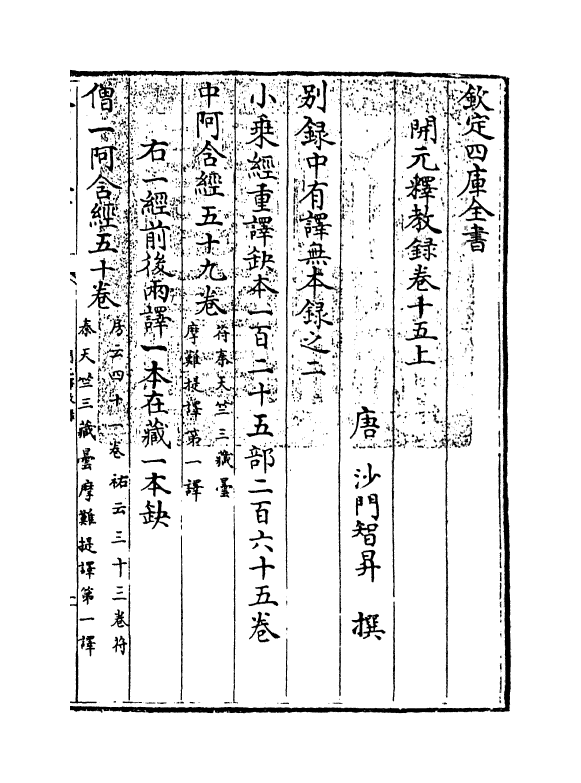 欽定四庫全書
開元釋教録卷十五上
唐 沙門智昇 撰
别録中有譯無本録之二
小乘經重譯缺本一百二十五部二百六十五卷
中阿含經五十九卷
符秦天竺三藏曇
摩難提譯第一譯
右一經前後兩譯一本在藏一本缺
僧一阿含經五十卷
房云四十一卷祐云三十三卷符
秦天竺三藏曇摩難提譯第一譯